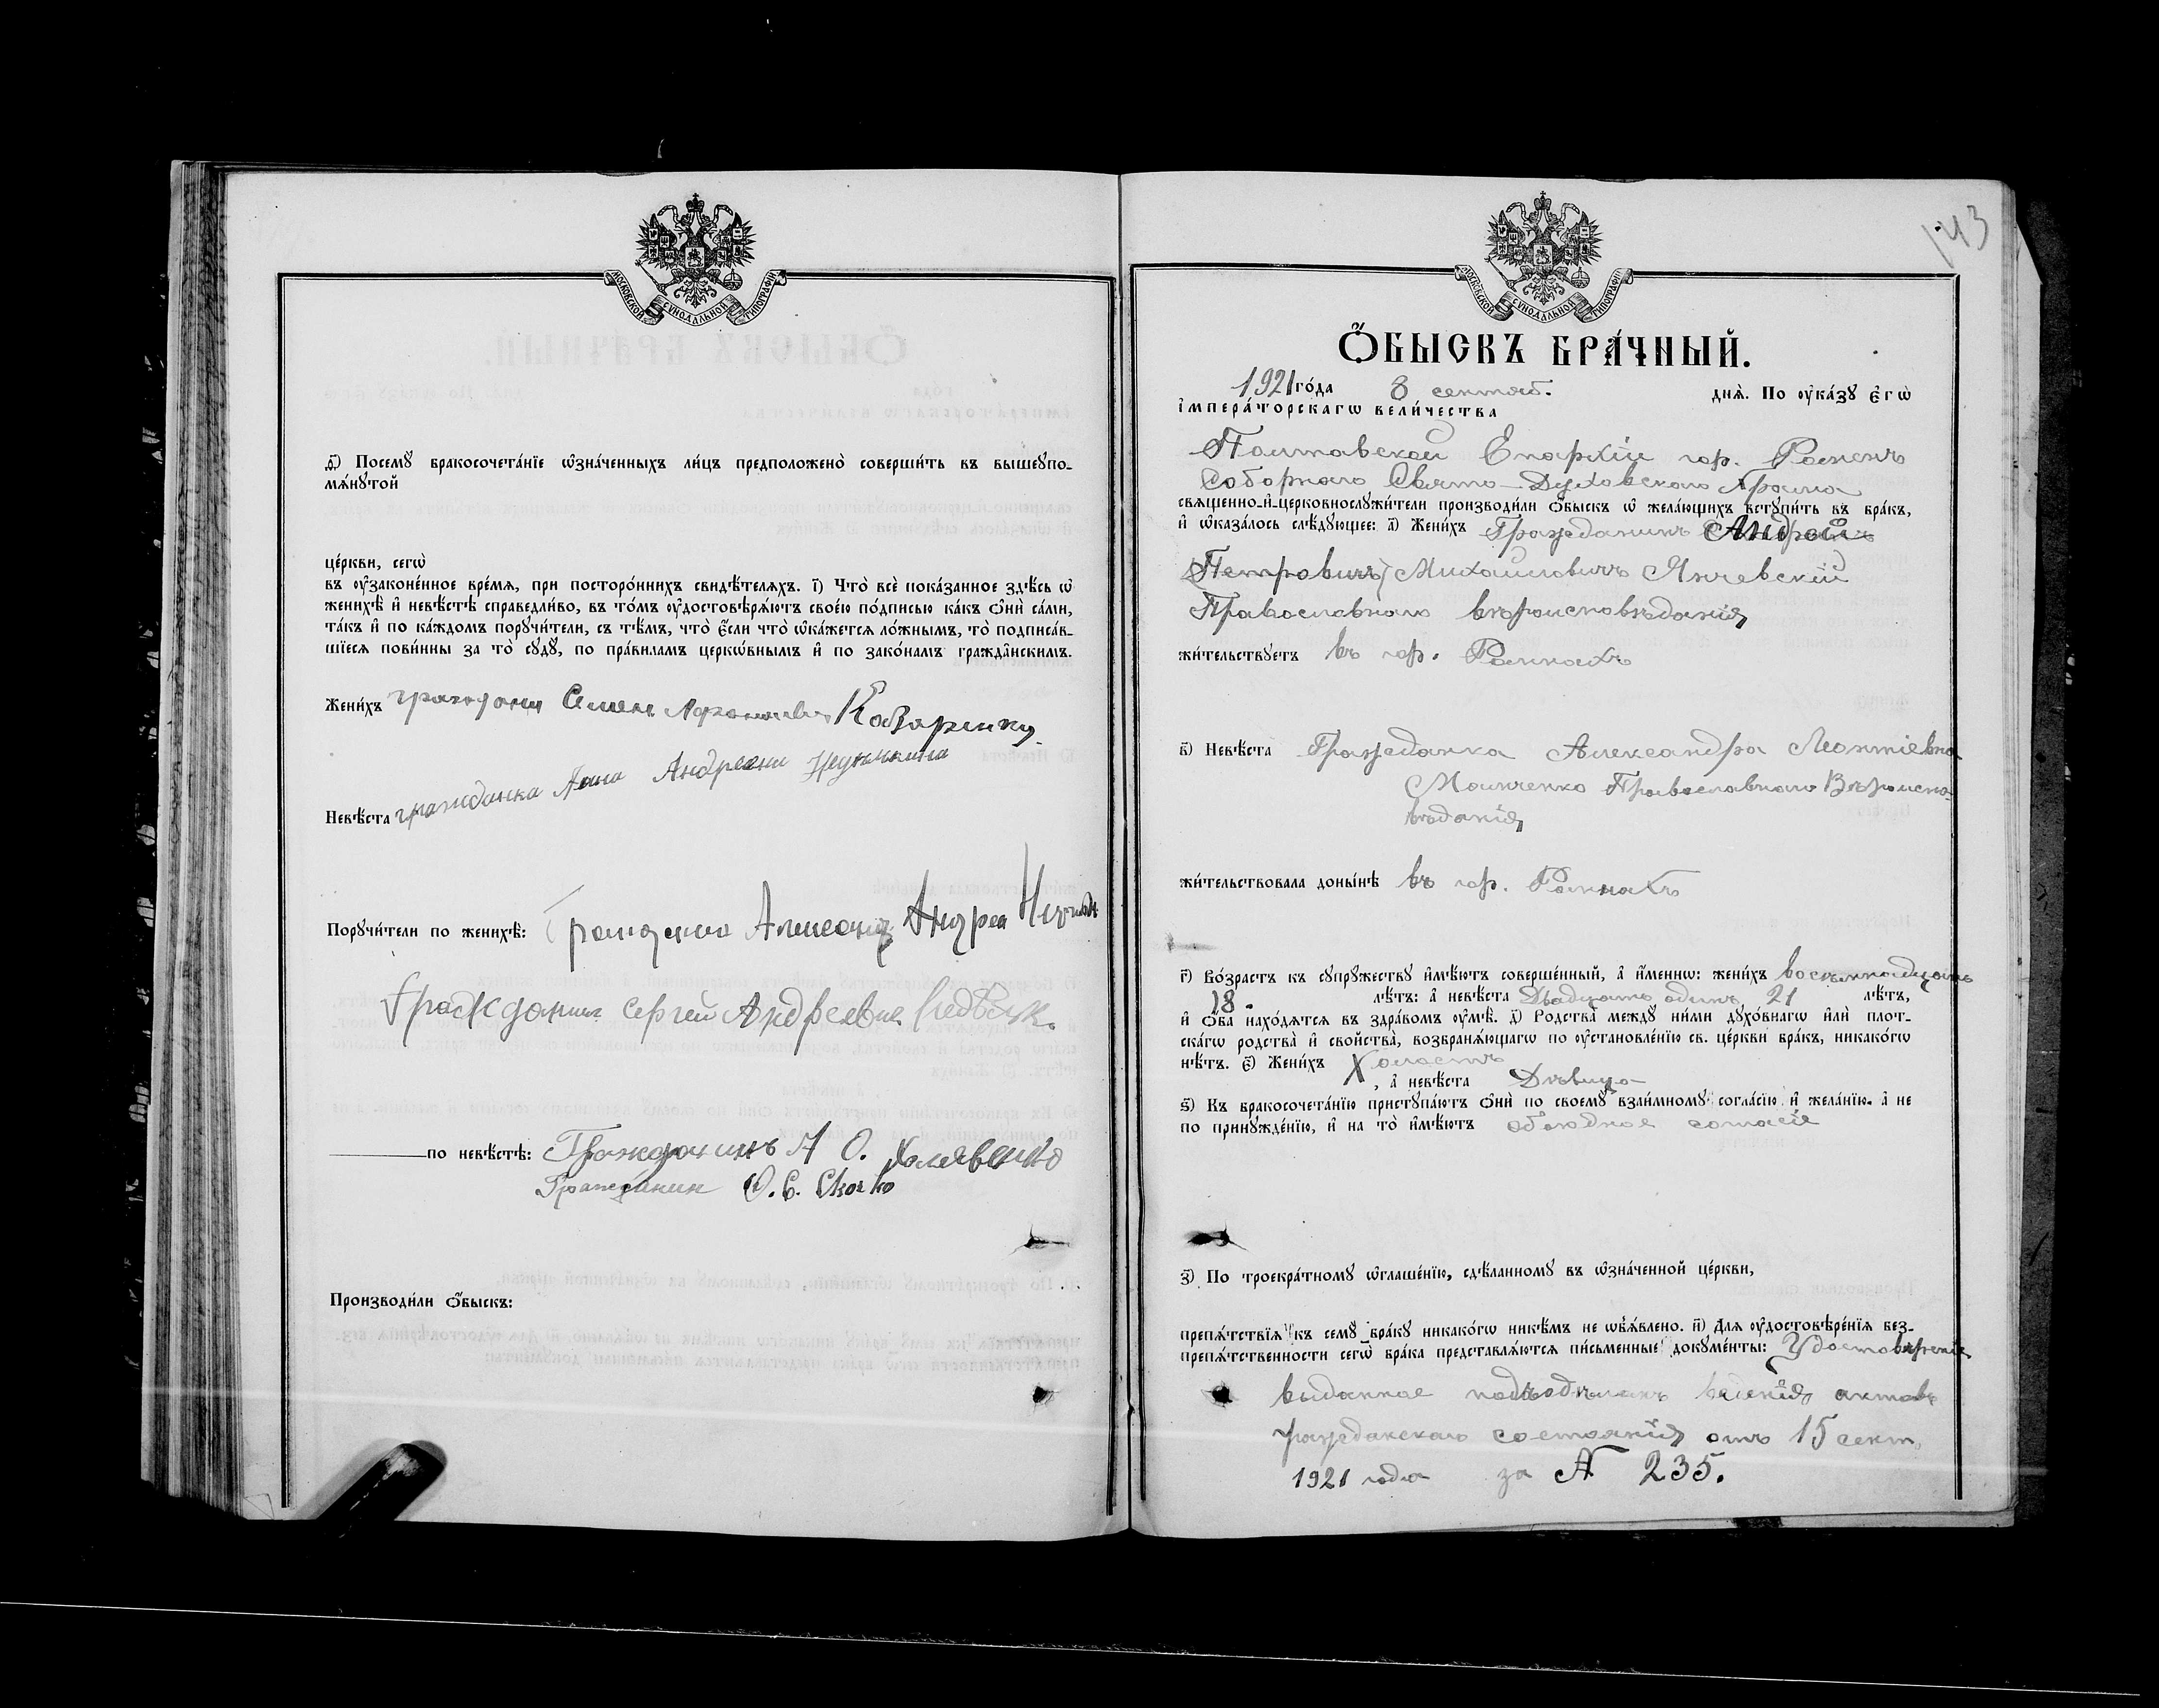 МОСКОВСКОЙ СѴНОДАЛЬНОЙ ТИПОГРАФІИ
ѳ҃) Посемꙋ̀ бракосочета́нїе ѡ҆зна́ченныхъ ли́цъ предположенò соверши́ть въ вышеꙋпо-
мѧ́нꙋтой
це́ркви, сегѡ̀
въ ᲂу҆зако́не́нное вре́мѧ, при посторо́ннихъ свидѣ́телѧхъ. і҃) Что̀ всѐ пока́занное здѣ́сь ѡ҆
женихѣ̀ и҆ невѣ́стѣ справедли́во, въ то́мъ ᲂу҆достовѣрѧ́ютъ свое́ю по́дписью ка́къ ѻ҆нѝ са́ми,
та́къ и҆ по ка́ждомъ порꙋчи́тели, съ тѣ́мъ, что̀ є҆́сли что̀ ѡ҆ка́жетсѧ ло́жнымъ, то̀ подписа́в-
шїесѧ пови́нны за то̀ сꙋдꙋ̀, по пра́виламъ церко́внымъ и҆ по зако́намъ гражда̂нскимъ.
Жени́хъ гражданин Семен Афанасиевич Коваренко
Невѣ́ста гражданка Анна Андреевна
Порꙋчи́тели по женихѣ̀: Гражданин Андрей
Гражданин Сергей Андреевич
по невѣ́стѣ: Гражданинъ А О. Халявенко
Гражданин О. С. Скочко
Производи́ли ѻ҆́быскъ:
143
МОСКОВСКОЙ СѴНОДАЛЬНОЙ ТИПОГРАФІИ
Ѻ҆́БЫСКЪ БРА́ЧНЫЙ.
1921 го́да 8 сентяб. днѧ̀. По ᲂу҆ка́зꙋ Є҆гѡ̀
і҆мпера́торскагѡ вели́чества
Полтавской Епархіи гор. Роменъ
Соборнаго Свято-Духовскаго Храма
свѧще́нно-и҆-церковнослꙋжи́тели производи́ли ѻ҆́быскъ ѡ҆ жела́ющихъ встꙋпи́ть въ бра́къ,
и҆ ѡ҆каза́лось слѣ́дꙋющее: а҃) Жени́хъ Гражданинъ Андрей
Петровичъ) Михайловичъ Янчевскій
Православнаго вѣроисповѣданія
жи́тельствꙋетъ въ гор. Ромнахъ
в҃) Невѣ́ста Гражданка Александра Леонтіевна
Моинченко Православнаго Вѣроиспо-
вѣданія
жи́тельствовала доны́нѣ въ гор. Ромнахъ
г҃) Во́зрастъ къ сꙋпрꙋ́жествꙋ и҆мѣ́ютъ соверше́нный, а҆ и҆́меннѡ: жени́хъ восемнадцать
18. лѣ́тъ: а҆ невѣ́ста Двадцать одинъ 21 лѣ́тъ,
и҆ ѻ҆́ба нахо́дѧтсѧ въ здра́вомъ ᲂу҆мѣ̀. д҃) Родства̀ междꙋ̀ ни́ми дꙋхо́внагѡ и҆лѝ плот-
ска́гѡ родства̀ и҆ сво́йства, возбранѧ́ющагѡ по ᲂу҆становле́нїю св. це́ркви бра́къ, никако́гѡ
нѣ́тъ. є҃) Жени́хъ Холостъ
, а҆ невѣ́ста Дѣвица
ѕ҃) Къ бракосочета́нїю пристꙋпа́ютъ ѻ҆нѝ по своемꙋ̀ взаи́мномꙋ согла́сїю и҆ жела́нїю. а҆ не
по принꙋжде́нїю, и҆ на то̀ и҆мѣ́ютъ обоюдное согласіе
з҃) По троекра́тномꙋ ѡ҆глаше́нїю, сдѣ́ланномꙋ въ ѡ҆зна́ченной це́ркви,
препѧ́тствїѧ къ семꙋ̀ бра́кꙋ никако́гѡ никѣ́мъ не ѡ҆б̾ѧ́влено. и҃) Длѧ ᲂу҆достовѣре́нїѧ без-
препѧ́тственности сегѡ̀ бра́ка представлѧ́ютсѧ пи́сьменные докꙋме́нты: Удостовѣреніе
выданное подъотдѣломъ веденія актовъ
гражданскаго состоянія отъ 15 сент.
1921 года за № 235.